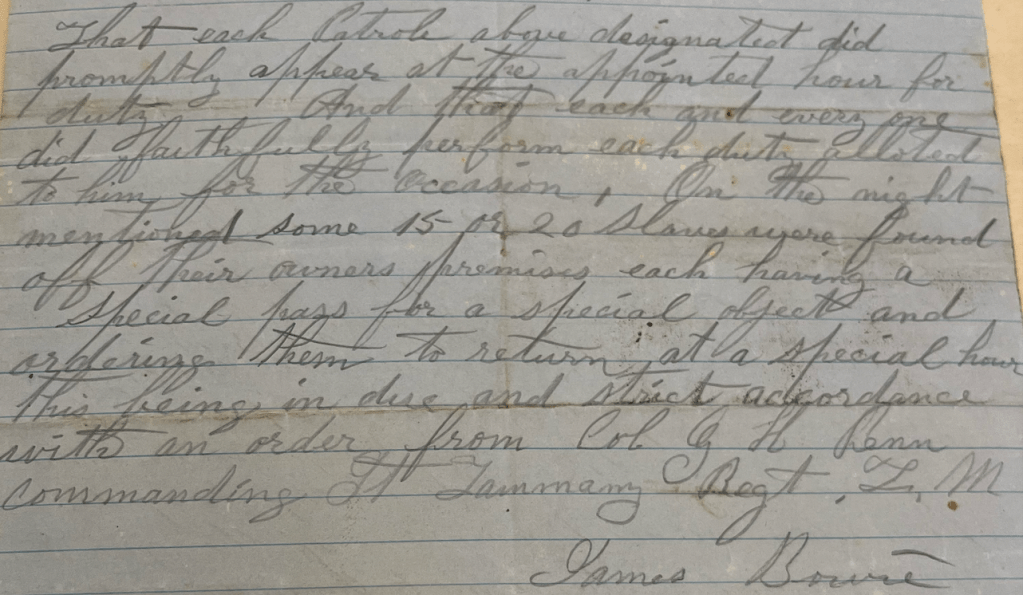 That each Patrole above designated did
promptly appear at the appointed hour for
duty And that each and every one
did faithfully perform each duty alloted
to him for the Occasion, On the night
mentioned some 15 or 20 Slaves were found
off their owners premises each having a
special pass for a special object and
ordering them to return at a special hour
this being in due and strict accordance
with an order from Col G H Penn
commanding St Tammany Regt, L, M
James Bowie